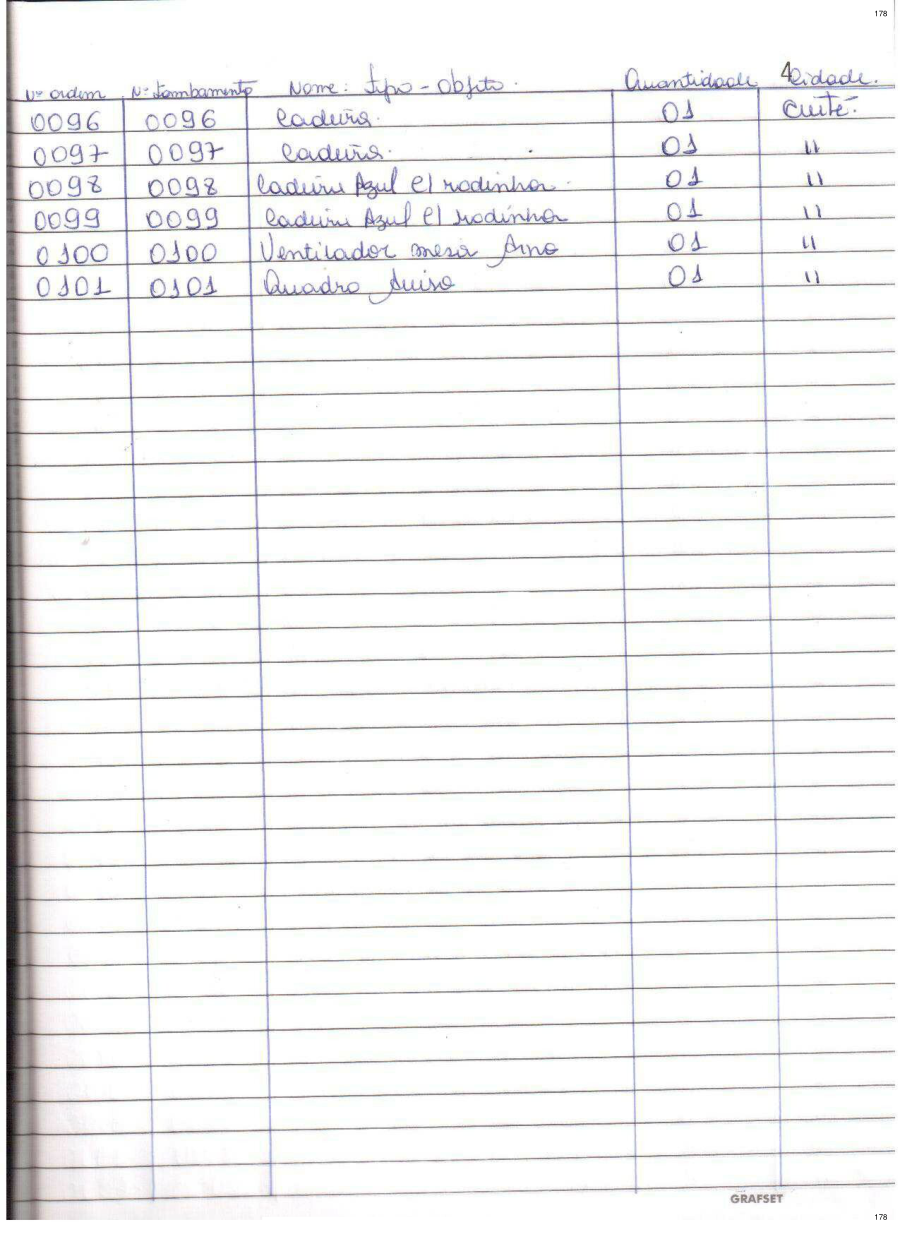 178
4
Nº ordem Nº Tombamento Nome: tipo - objeto. Quantidade Cidade.
0096 0096 Cadeira. 01 Cuité.
0097 0097 Cadeira. 01 "
0098 0098 Cadeira Azul c/ rodinha. 01 "
0099 0099 Cadeira Azul c/ rodinha 01 "
0100 0100 Ventilador mesa Arno 01 "
0101 0101 Quadro Aviso 01 "
GRAFSET
178